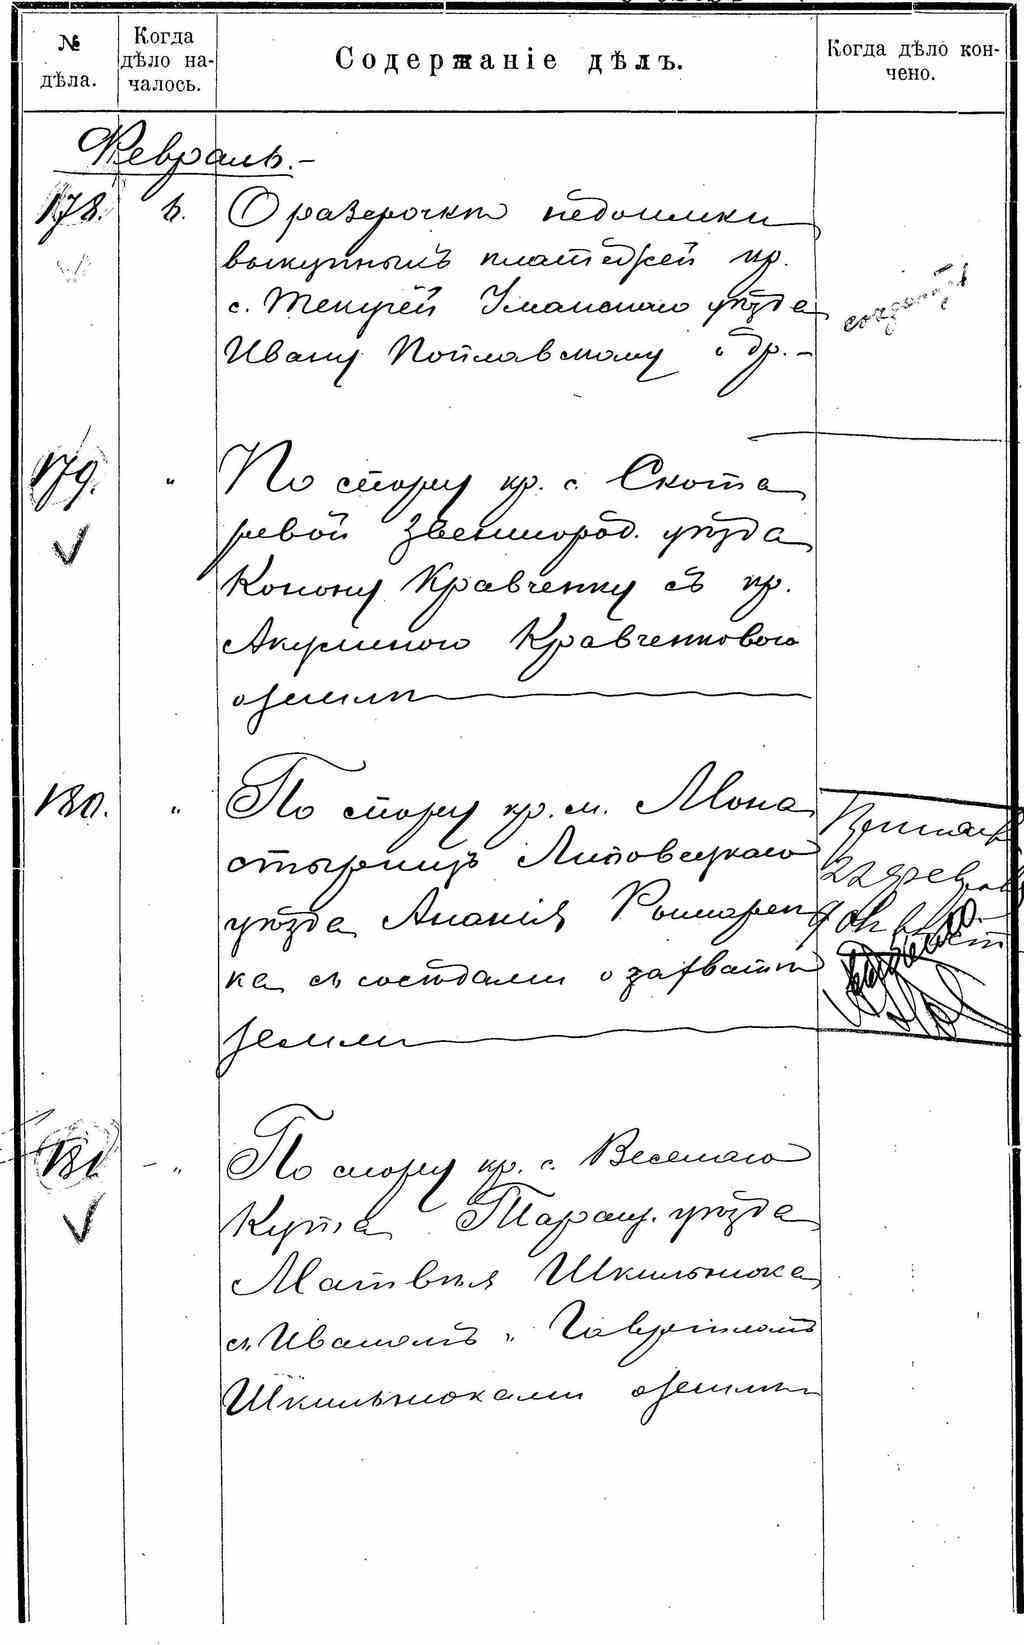 № дѣла.
Когда
дѣло на-
чалось.
Содержаніе дѣлъ.
Когда дѣло кон-
чено.
Февраль.-
178. 6. О разсрочкѣ недоимки
выкупныхъ платежей кр.
с. Текучей Уманскаго уѣзда
Ивану Поплавскому и др.-
179. " По спору кр. с. Скота
ревой Звенигород. уѣзда
Конону Кравченку съ кр.
Акулиною Кравченковою
о землѣ
180. " По спору кр. м. Мона
стырищъ Липовецкаго
уѣзда Ананія Рымарен
ка съ сосѣдами о захватѣ
земли
22 Февра
181 - " По спору кр. с. Веселаго
Кута Таращ. уѣзда
Матвѣя Шкильнюка
съ Иваномъ и Гавріиломъ
Шкильнюками о землѣ